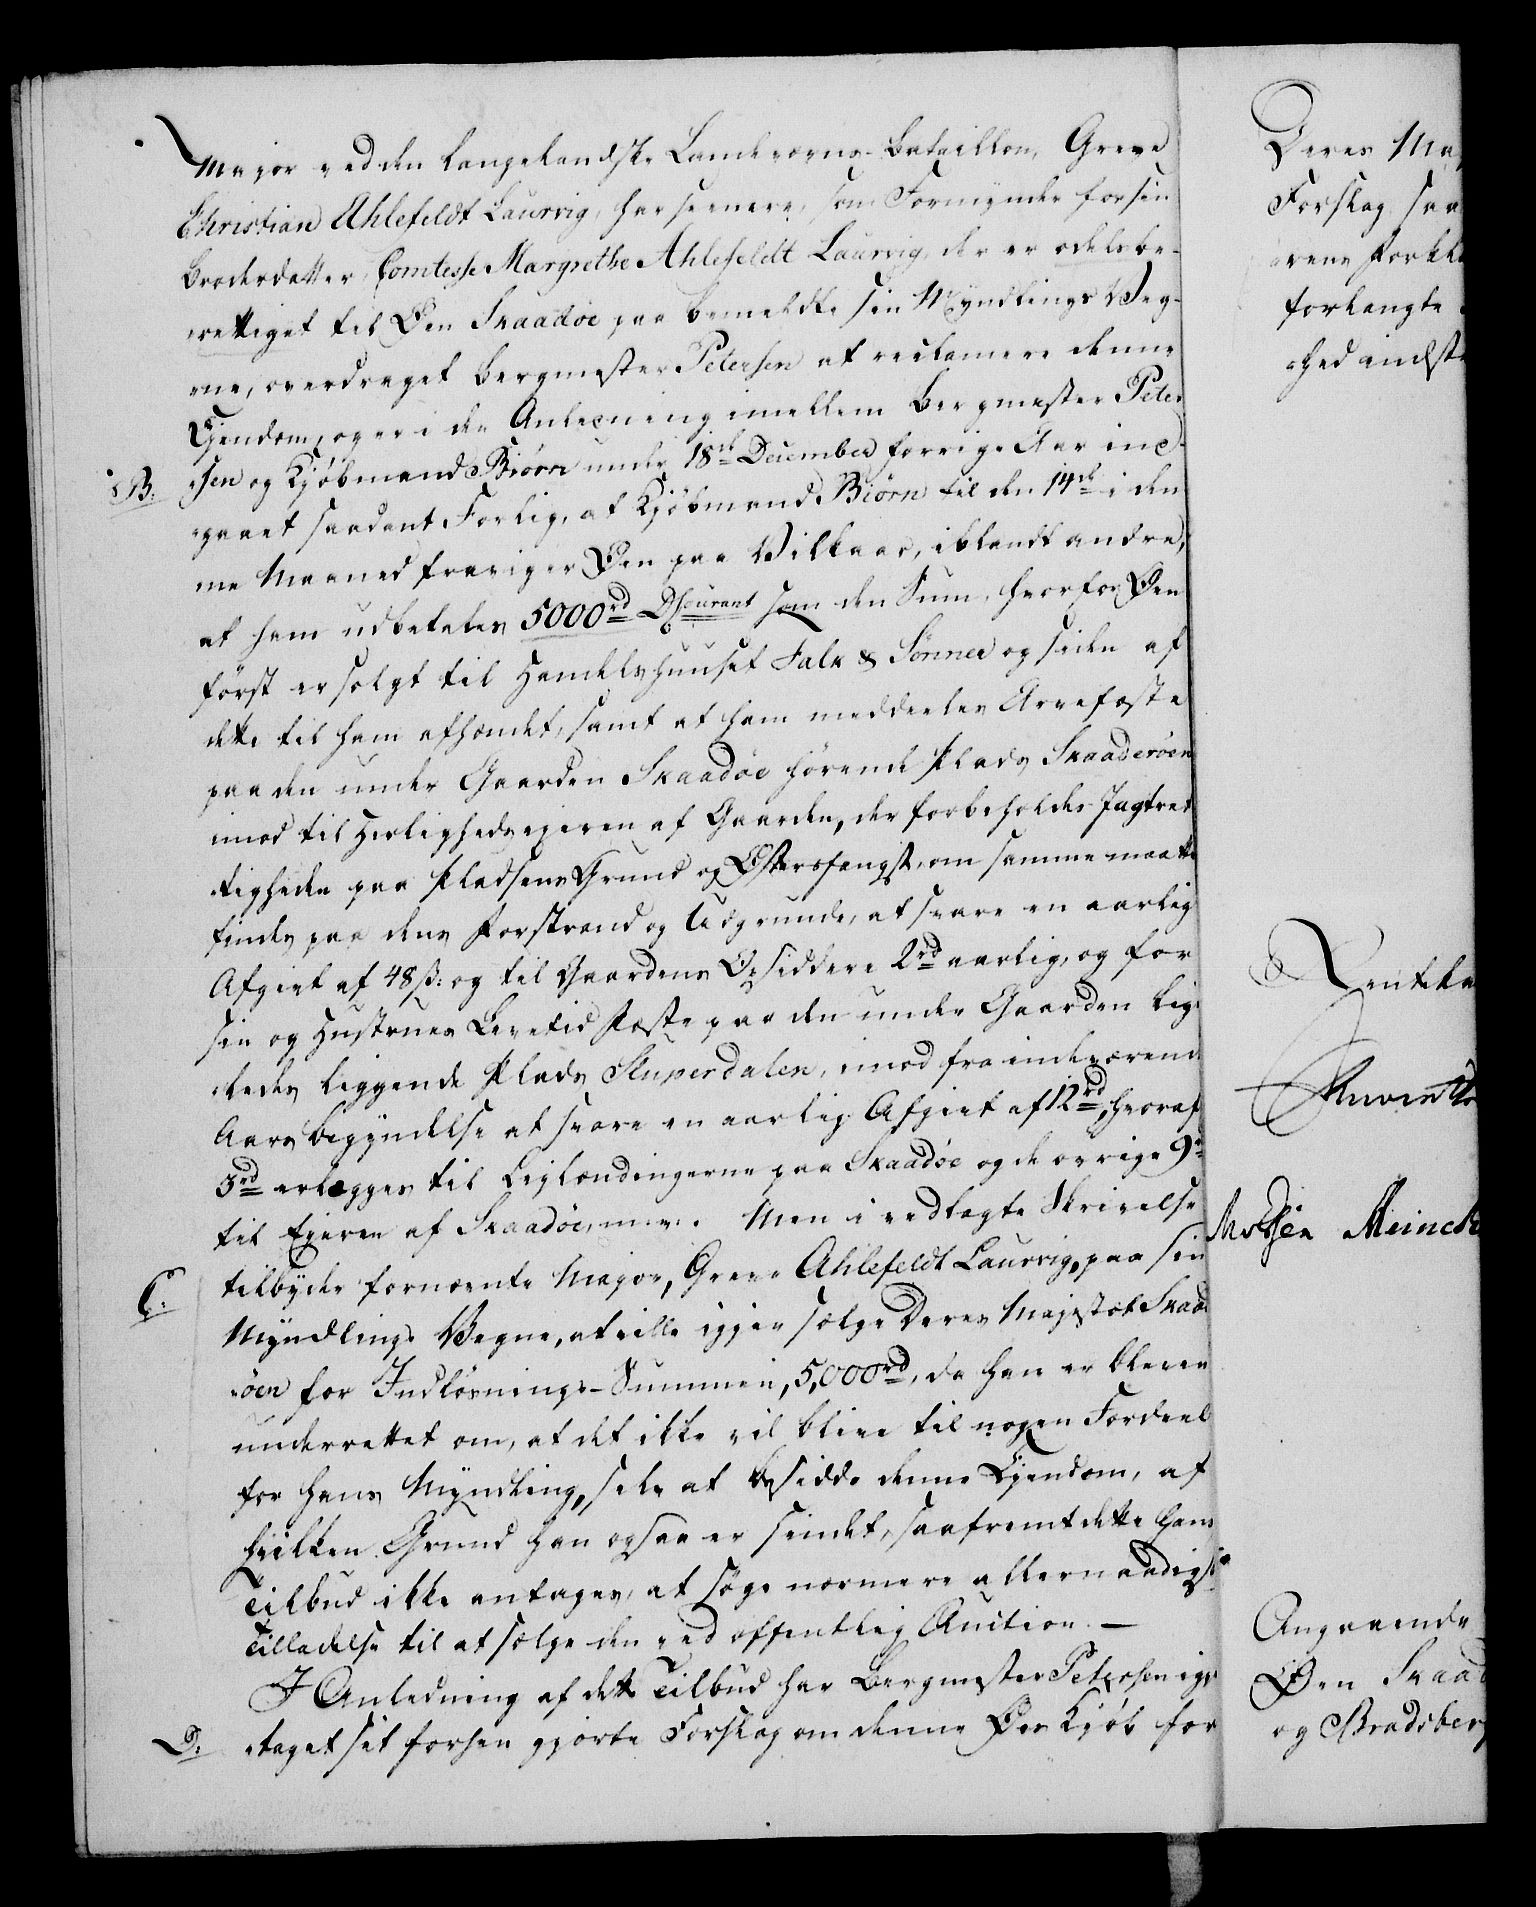 Major ved den langelandske Landeværns-Bataillon, Greve
Christian Ahlefeldt Laurvig, har seenere, som Formynder for sin
Broderdatter, Comtesse Margrethe Ahlefeldt Laurvig, der er odelsbe-
rettiget til Øen Skaadøe paa bemeldte sin Myndlings Veg-
ne, overdraget Bergmester Petersen at reclamere denne
Ejendom, og er i den Anledning imellem Bergmester Peter
sen og Kjøbmand Biørn under 18de December forrige Aar ind-
B: gaaet saadant Forlig, at Kjøbmand Biørn til den 14de i den
ne Maaned fraviger Øen paa Vilkaar, iblandt andre,
at ham udbetales 5000rd DCourant som den Sum, hvorfor Øen
først er solgt til Handelshuuset Falk & Sønner og siden af
dette til ham afhændet, samt at ham meddeeles Arvefæste
paa den under Gaarden Skaadøe hørende Plads Skaaderøen
imod til Herlighedsejeren af Gaarden, der forbeholdes Jagtret
tigheden paa Pladsens Grund og Østersfangst, om samme maatte
findes paa dens Forstrand og Udgrunde, at svare en aarlig
Afgivt af 48 ß: og til Gaardens Besiddere 2rd aarlig, og for
sin og Hustrues Levetid Fæste paa den under Gaarden lige
ledes liggende Plads Stuperdalen, imod fra indeværende
Aars Begyndelse at svare en aarlig Afgivt af 12rd, hvoraf
3rd erlægges til Leylændingerne paa Skaadøe og de øvrige 9rd
til Ejeren af Skaadøe, m.m. Men i vedlagte Skrivelse
C: tilbyder fornævnte Major, Greve Ahlefeldt Laurvig, paa sin
Myndlings Vegne, at ville igjen sælge Deres Majestæt Skaad
øen for Indløsnings-Summen, 5,000rd, da han er bleven
underrettet om, at det ikke vil blive til nogen Fordeel
for hans Myndling, selv at besidde denne Ejendom, af
hvilken Grund han ogsaa er sindet, saafremt dette hans
Tilbud ikke antages, at søge nærmere allernaadigst
Tilladelse til at sælge den ved offentlig Auction. —
I Anledning af dette Tilbud har Bergmester Petersen igjen
D: taget sit forhen gjorte Forslag om denne Øes Kjøb for
Deres Ma
Forslag saa
forlangte
Rentekam
Meinck
Angaaende
Øen Skaad
og Bradsberg